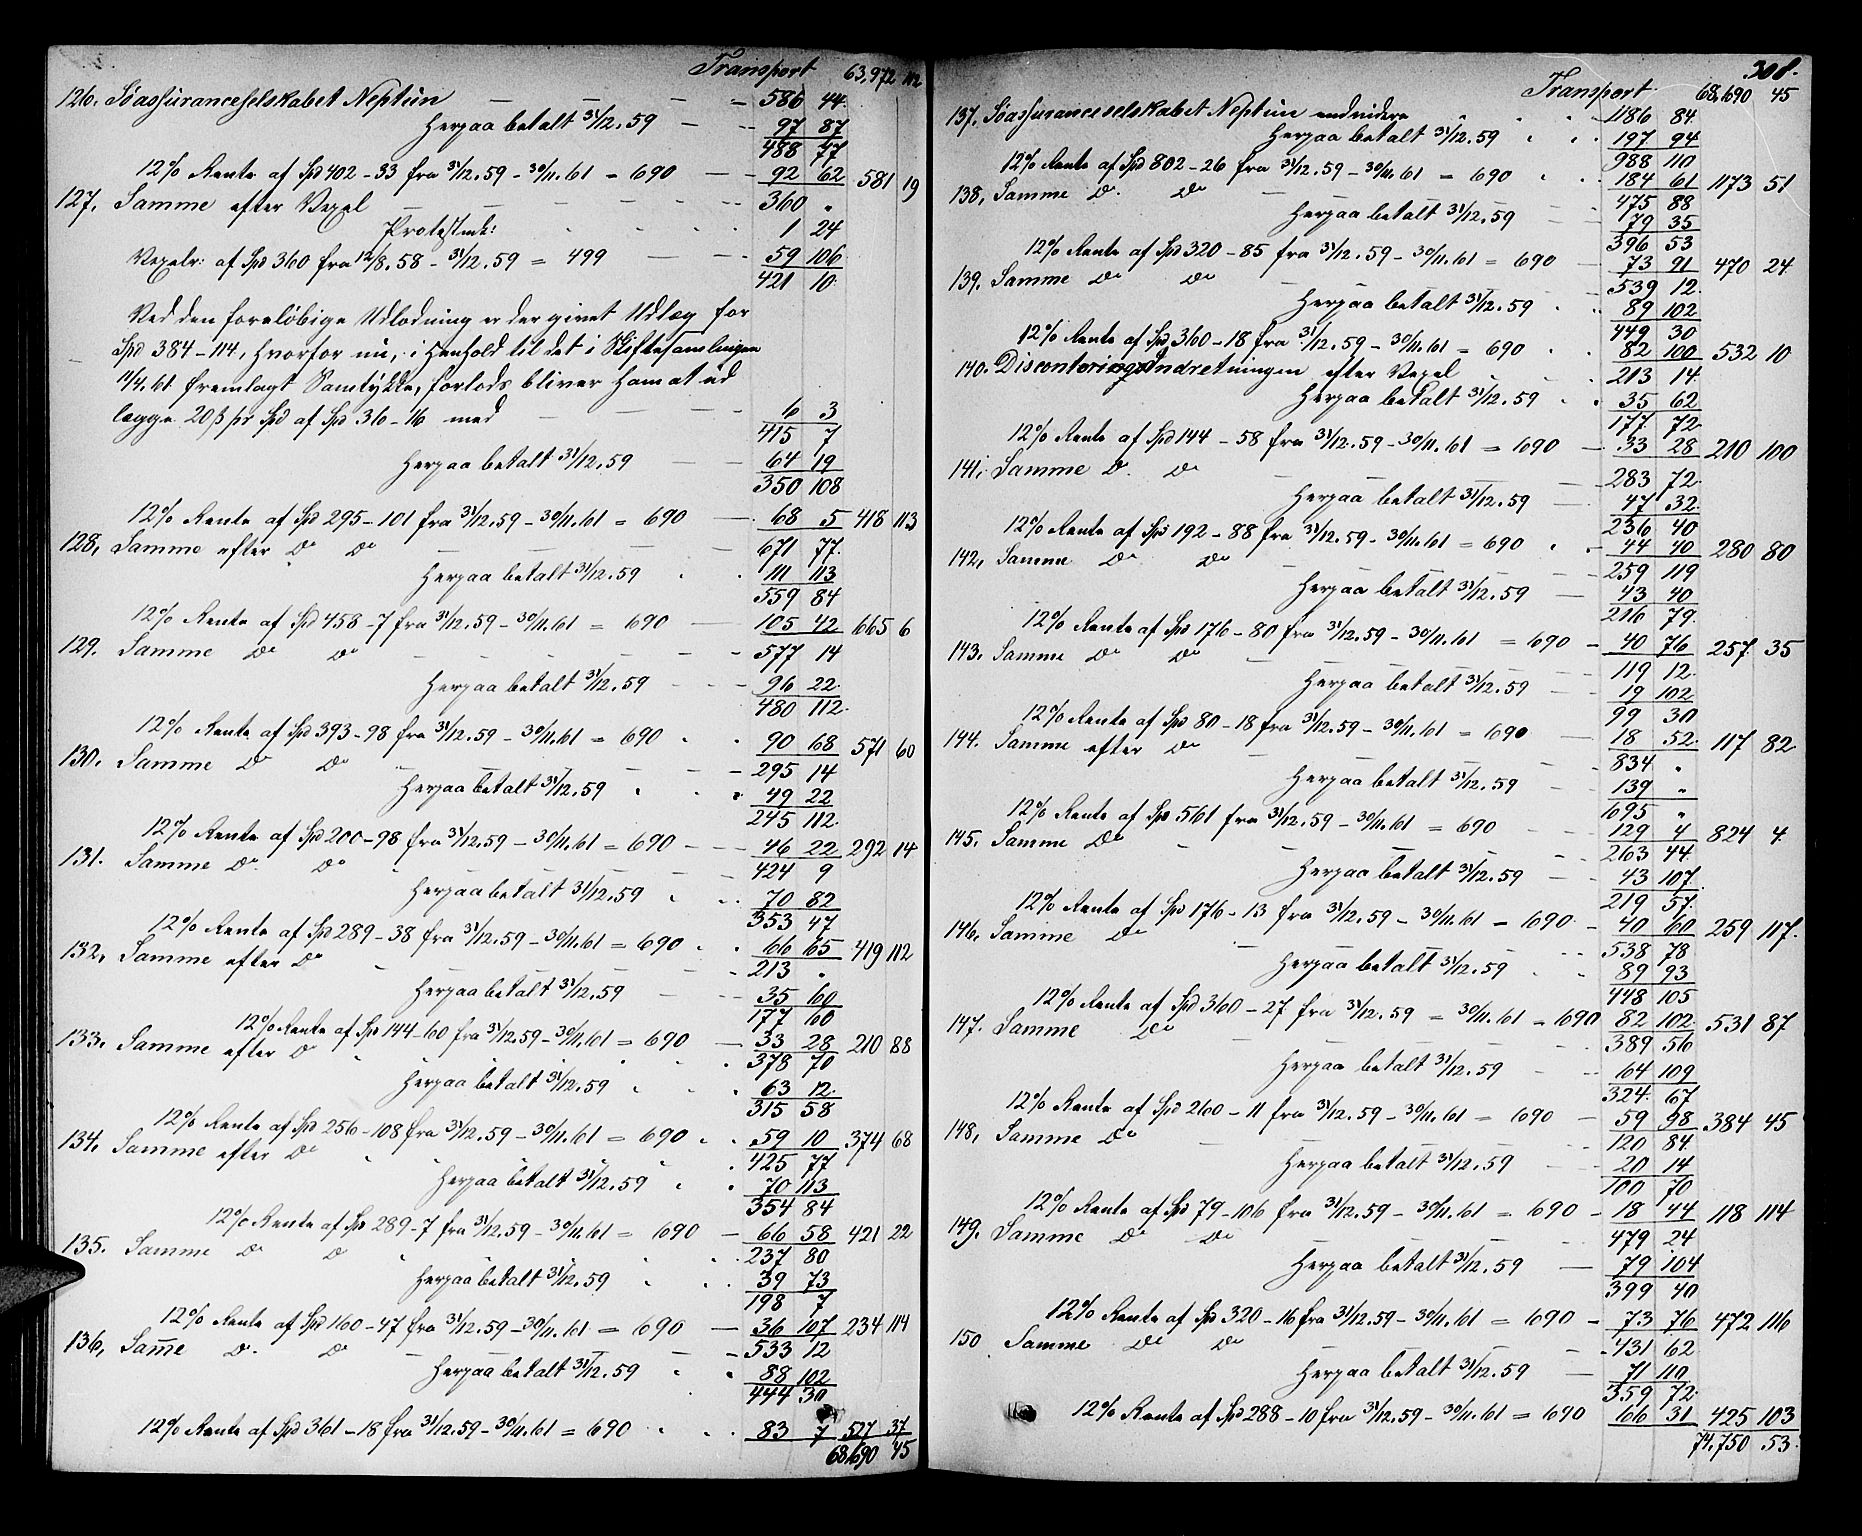 Transport 63,972 112
126. Söassuranceselskabet Neptun — — — 586 44
Herpaa betalt 31/12.59 — — 97 87
488 77
12% Rente af Spd 402 - 33 fra 31/12.59 - 30/11.61 = 690 — 92 62 581 19
127. Samme efter Vexel — — — 360 "
Protestomk: 1 24
Vexelr: af Spd 360 fra 12/8.58 - 31/12.59 = 499 — 59 106
421 10
Ved den foreløbige Udlodning er der givet Udlæg for
Spd 384-114, hvorfor nu, i Henhold til det i Skiftesamlingen
11/4.61 fremlagt Samtykke, forlods bliver ham at ud
lægge 20 β pr Spd af Spd 36-16 med — — 6 3
415 7
Herpaa betalt 31/12.59 — — 64 19
350 108
12% Rente af Spd 295-101 fra 31/12.59 - 30/11.61 = 690 — 68 5 418 113
128. Samme efter Do Do — — 671 77
Herpaa betalt 31/12.59 111 113
559 84
12% Rente af Spd 458-7 fra 31/12.59 - 30/11.61 = 690 — 105 42 665 6
129. Samme Do Do — — 577 14
Herpaa betalt 31/12.59 — 96 22
480 112
12% Rente af Spd 393-98 fra 31/12.59 - 30/11.61 = 690 90 68 571 60
130. Samme Do Do — 295 14
Herpaa betalt 31/12.59 49 22
245 112
12% Rente af Spd 200-98 fra 31/12.59 - 30/11.61 = 690 — 46 22 292 14
131. Samme Do Do — 424 9
Herpaa betalt 31/12.59 70 82
353 47
12% Rente af Spd 289-38 fra 31/12.59 - 30/11.61 = 690 66 65 419 112
132. Samme efter Do 213 "
Herpaa betalt 31/12.59 — 35 60
177 60
12% Rente af Spd 144-60 fra 31/12.59 - 30/11.61 = 690 — 33 28 210 88
133. Samme efter Do 378 70
Herpaa betalt 31/12.59 63 12
315 58
12% Rente af Spd 256-108 fra 31/12.59 - 30/11.61 = 690 59 10 374 68
134. Samme efter Do 425 77
Herpaa betalt 31/12.59 70 113
354 84
12% Rente af Spd 289-7 fra 31/12.59 - 30/11.61 = 690 — 66 58 421 22
135. Samme Do D 237 80
Herpaa betalt 31/12.59 39 73
198 7
12% Rente af Spd 160-47 fra 31/12.59 - 30/11.61 = 690 — 36 107 234 114
136. Sam̄e Do Do — 533 12
Herpaa betalt 31/12.59 88 102
444 30
12% Rente af Spd 361-18 fra 31/12.59 - 30/11.61 = 690 83 7 527 37
68,690 45
301.
Transport 68,690 45
137. Söassuranceselskabet Neptun endvidere 1186 84
Herpaa betalt 31/12.59 197 94
988 110
12% Rente af Spd 802-26 fra 31/12.59 - 30/11.61 = 690 184 61 1173 51
138. Samme Do Do 475 88
Herpaa betalt 31/12.59 — 79 35
396 53
12% Rente af Spd 320-85 fra 31/12.59 - 30/11.61 = 690 — 73 91 470 24
139. Samme Do Do 539 12
Herpaa betalt 31/12.59 89 102
449 30
12% Rente af Spd 360-18 fra 31/12.59 - 30/11.61 = 690 82 100 532 10
140. Disconteringsindretningen efter Vexel 213 14
Herpaa betalt 31/12.59 35 62
177 72
12% Rente af Spd 144-58 fra 31/12.59 - 30/11.61 = 690 — 33 28 210 100
141. Samme Do Do — 283 72
Herpaa betalt 31/12.59 — 47 32
236 40
12% Rente af Spd 192-88 fra 31/12.59 - 30/11.61 = 690 44 40 280 80
142. Samme Do Do — 259 119
Herpaa betalt 31/12.59 — 43 40
216 79
12% Rente af Spd 176-80 fra 31/12.59 - 30/11.61 = 690 — 40 76 257 35
143. Samme Do Do — 119 12
Herpaa betalt 31/12.59 — 19 102
99 30
12% Rente af Spd 80-18 fra 31/12.59 - 30/11.61 = 690 — 18 52 117 82
144. Samme efter Do — 834 "
Herpaa betalt 31/12.59 — 139 "
695 "
12% Rente af Spd 561 fra 31/12.59 - 30/11.61 = 690 — 129 4 824 4
145. Samme Do — 263 44
Herpaa betalt 31/12.59 — 43 107
219 57
12% Rente af Spd 176-13 fra 31/12.59 - 30/11.61 - 690 - 40 60 259 117
146. Samme Do — 538 78
Herpaa betalt 31/12.59 89 93
448 105
12% Rente af Spd 360-27 fra 31/12.59 = 30/11.61 = 690 82 102 531 87
147. Samme Do 389 56
Herpaa betalt 31/12.59 — 64 109
324 67
12% Rente af Spd 260-11 fra 31/12.59 - 30/11.61 = 690 — 59 98 384 45
148. Samme Do — 120 84
Herpaa betalt 31/12.59 — 20 14
100 70
12% Rente af Spd 79-106 fra 31/12.59 - 30/11.61 = 690 - 18 44 118 114
149. Samme Do Do 479 24
Herpaa betalt 31/12.59 — 79 104
399 40
12% Rente af Spd 320-16 fra 31/12.59 - 30/11.61 = 690 - 73 76 472 116
150 Samme Do Do — 431 62
Herpaa betalt 31/12.59 — 71 110
359 72
12% Rente af Spd 288-10 fra 31/12.59 - 30/11.61 = 690 66 31 425 103
74,750 53